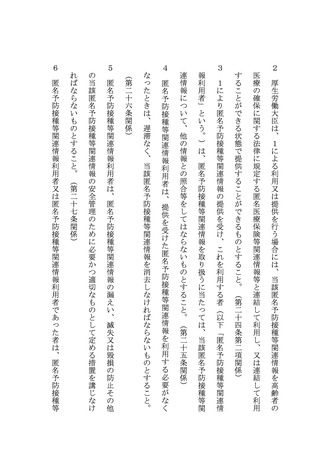 ２　厚生労働大臣は、１による利用又は提供を行う場合には、当該匿名予防接種等関連情報を高齢者の
医療の確保に関する法律に規定する匿名医療保険等関連情報等と連結して利用し、又は連結して利用
することができる状態で提供することができるものとすること。（第二十四条第二項関係）
３　１により匿名予防接種等関連情報の提供を受け、これを利用する者（以下「匿名予防接種等関連情
報利用者」という。）は、匿名予防接種等関連情報を取り扱うに当たっては、当該匿名予防接種等関
連情報について、他の情報との照合等をしてはならないものとすること。（第二十五条関係）
４　匿名予防接種等関連情報利用者は、提供を受けた匿名予防接種等関連情報を利用する必要がなく
なったときは、遅滞なく、当該匿名予防接種等関連情報を消去しなければならないものとすること。
（第二十六条関係）
５　匿名予防接種等関連情報利用者は、匿名予防接種等関連情報の漏えい、滅失又は毀損の防止その他
の当該匿名予防接種等関連情報の安全管理のために必要かつ適切なものとして定める措置を講じなけ
ればならないものとすること。（第二十七条関係）
６　匿名予防接種等関連情報利用者又は匿名予防接種等関連情報利用者であった者は、匿名予防接種等